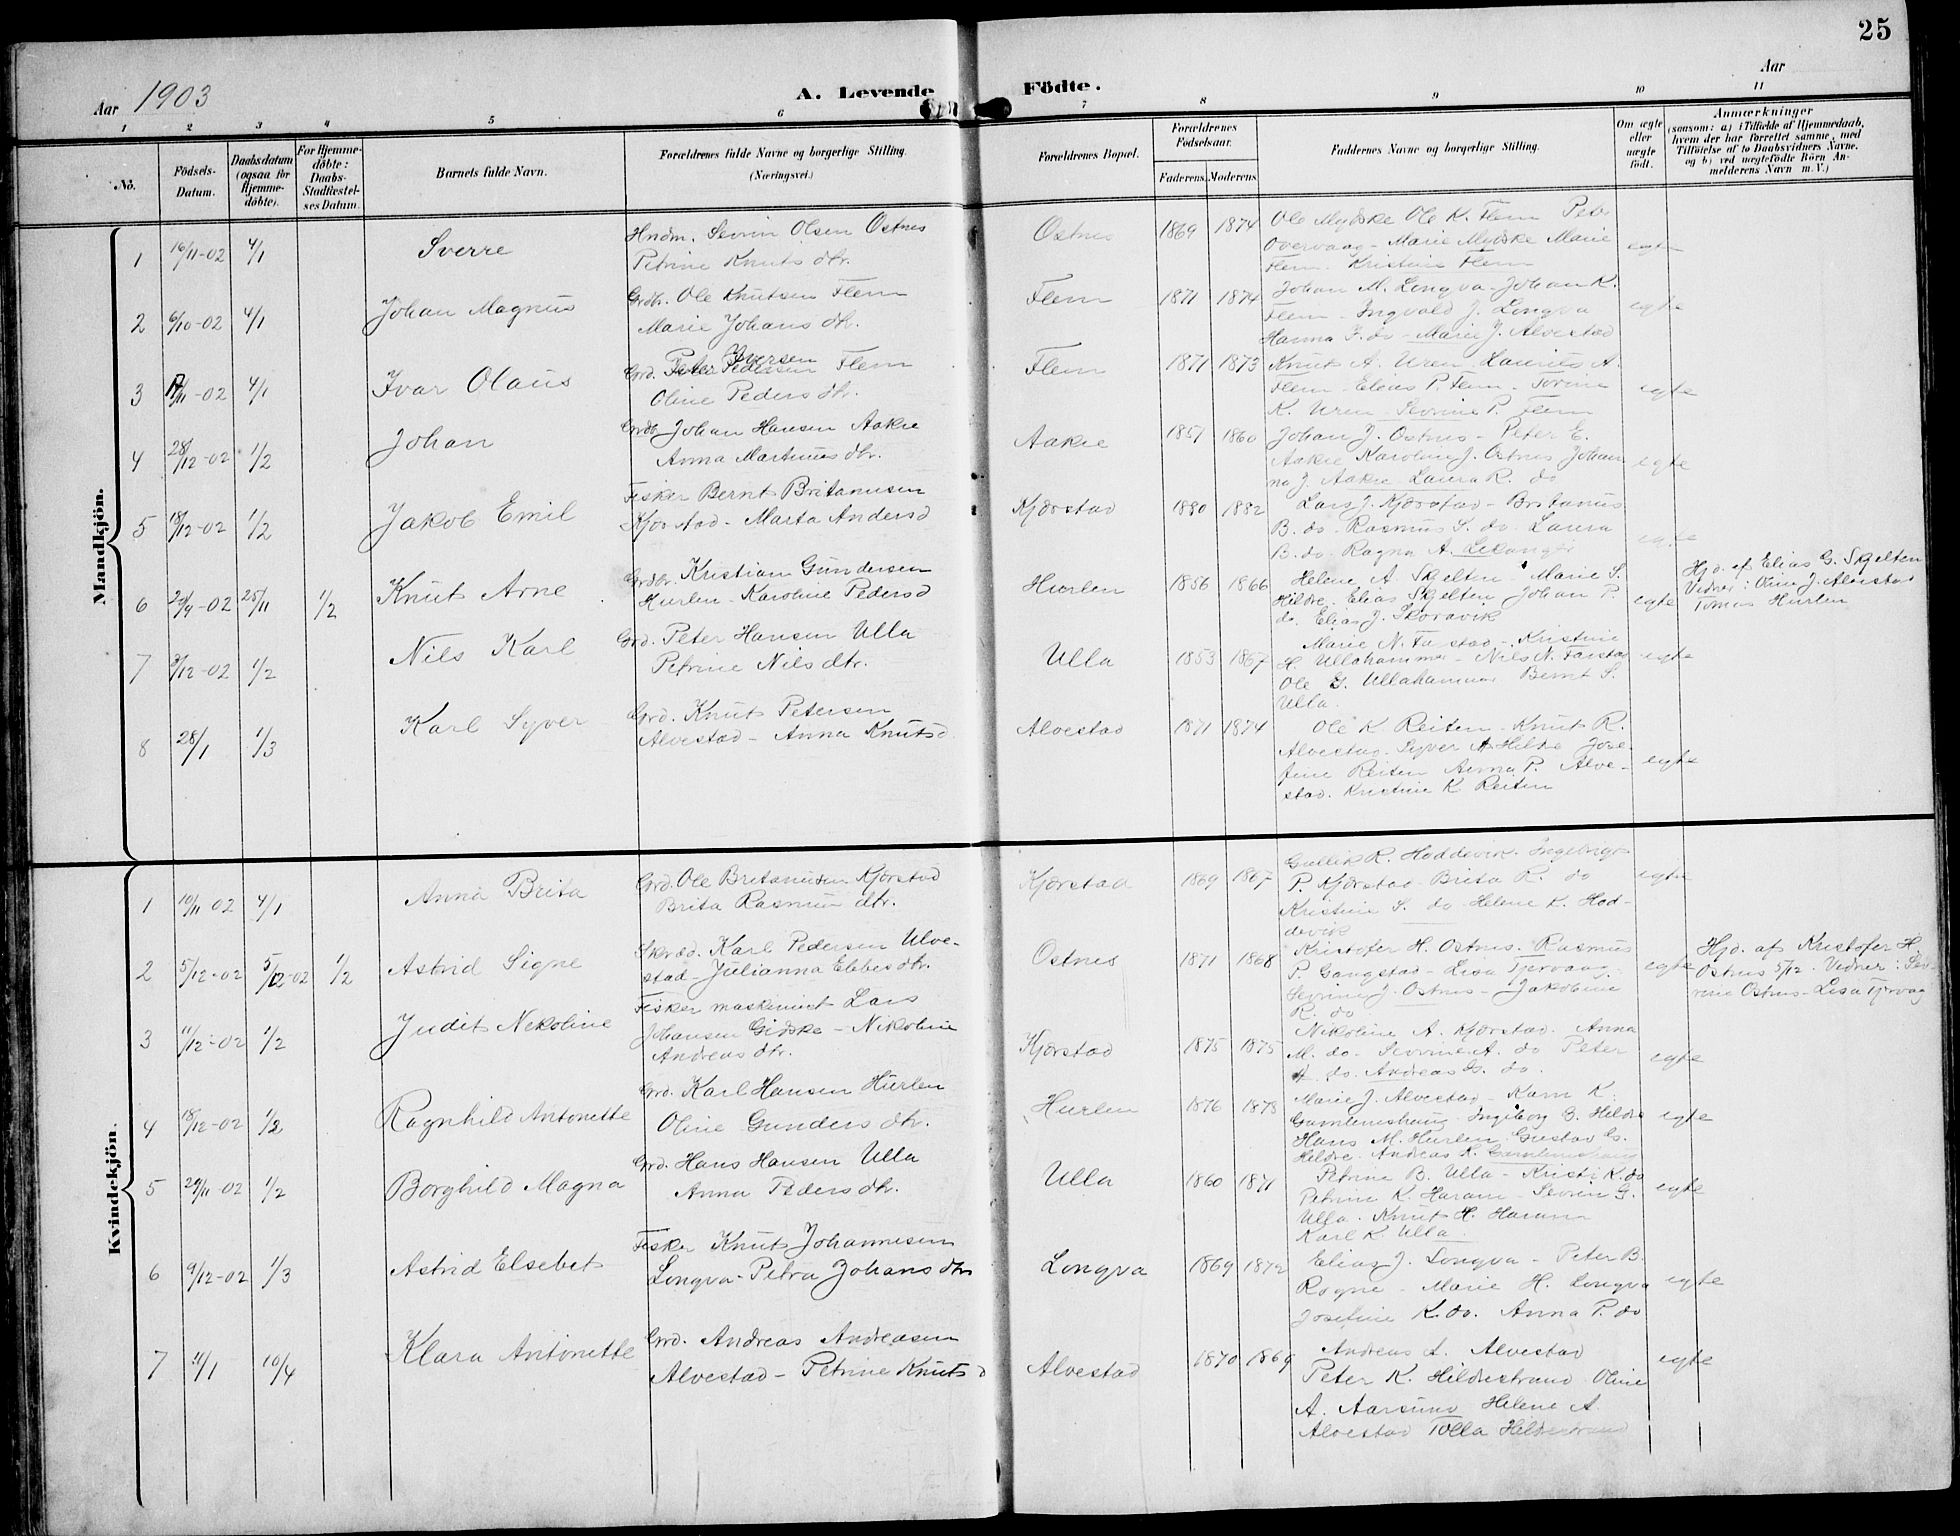 25
Aar 1903
A. Levende
Födte.
Aar
1 2 3 4 5 6 7 8 9 10 11
No.
Födsels-Datum.
Daabsdatum (ogsaa for Hjemme-döbte).
For Hjemme-döbte: Daabs-Stadfæstel-ses Datum.
Barnets fulde Navn.
Forældrenes fulde Navne og borgerlige Stilling.
(Næringsvei.)
Forældrenes Bopæl.
Forældrenes Födselsaar.
Faderens. Moderens.
Faddernes Navne og borgerlige Stilling.
Om ægte eller uægte födt.
Anmærkninger
(saasom: a) i Tilfælde af Hjemmedaab,
hvem der har forrettet samme, med
Tilföielse af to Daabsvidners Navne.
og b) ved uægtefödte Börn An-
melderens Navn m. V.)
Mandkjön.
1 16/11-02 4/1 Sverre
Hndm. Sevrin Olsen Ostnes
Petrine Knuts dtr.
Ostnes 1869 1874
Ole Mydske Ole K. Flem Petr
Overvaag - Marie Mydske Marie
Flem. Kristine Flem
egte
2 6/10-02 4/1 Johan Magnus
Grdbr. Ole Knutsen Flem
Marie Johans dtr.
Flem 1871 1874
Johan M. Longva - Johan K.
Flem - Ingvald J. Longva
Hanna F. do - Marie J. Alvestad
egte
3 /11-02 4/1 Ivar Olaus
Iversen
Grd. Peter Pedersen Flem
Oline Peders dtr.
Flem 1871 1873
Knut A. Uren Laurits A.
Flem - Elias P. Flem - Torine
K. Uren - Sevrine P. Flem
egte
4 28/12-02 1/2 Johan
Grdb. Johan Hansen Aakre
Anna Martinus dtr.
Aakre 1857 1860
Johan J. Ostnes - Peter E.
Aakre Karoline J. Ostnes Johan
na J. Aakre Laura R. do
egte
5 18/12-02 1/2 Jakob Emil
Fisker Bernt Britanusen
Kjærstad - Marta Anders d
Kjærstad 1880 1882
Lars J. Kjærstad - Britanus
B. do - Rasmus S. do Laura
B. do - Ragna A.
egte
6 29/9-02 25/11 1/2 Knut Arne
Grdbr. Kristian Gundersen
Hurlen - Karoline Peders d
Hurlen 1856 1866
Helene A. Skjelten - Marie S.
Hildre. Elias Skjelten Johan P.
do Elias J. Skoravik
egte
Hjd. af Elias G. Skjelten
Vidner: Oline J. Alvestad
Tomas Hurlen
7 3/12-02 1/2 Nils Karl
Grd. Peter Hansen Ulla
Petrine Nils dtr.
Ulla 1853 1867
Marie N. Farstad - Kristine
H. Ullahammer - Nils N. Farstad
Ole G. Ullahammer Bernt S.
Ulla.
egte
8 28/1 1/3 Karl Syver
Grd. Knut Petersen
Alvestad - Anna Knuts d.
Alvestad 1871 1874
Ole K Reiten - Knut R.
Alvestad - Syver A. Hildre Jose-
fine Reiten Anna P. Alve-
stad. Kristine K Reiten
egte
Kvindekjön.
1 10/11 02 4/1 Anna Brita
Grd. Ole Britanusen Kjærstad
Brita Rasmus dtr.
Kjærstad 1869 1867
Gullik R. Hoddevik. Ingeborg
P. Kjærstad - Brita R. do
Kristine S. do - Helene K. Hod-
devik
egte
2 5/12-02 5/12-02 1/2 Astrid Signe
Skræd. Karl Pedersen Alve-
stad - Julianna Ebbes dtr.
Ostnes 1871 1868
Kristofer H. Ostnes. Rasmus
P. Gangstad - Lisa Tjervaag
Sevrine J. Ostnes - Jakobine
R. do
egte
Hjd. af Kristofer H.
Ostnes 5/12. Vidner: Sev-
rine Ostnes - Lisa Tjervaag
3 11/12-02 1/2 Judit Nekoline
Fisker maskinist Lars
Johansen Gidske - Nikoline
Andreas dtr.
Kjærstad 1875 1875
Nikoline A. Kjærstad. Anna
M. do. Sevrine A. do Peter
A. do. Andreas G. do.
egte
4 18/12-02 1/2 Ragnhild Antonette
Grd. Karl Hansen Hurlen
Oline Gunders dtr.
Hurlen 1876 1878
Marie J. Alvestad - Karn K.
Gamlemshaug - Ingeborg G. Hildre
Hans M. Hurlen. Gustav G.
Hildre. Andreas K. Gamlemshaug
egte
5 29/11-02 1/2 Borghild Magna
Grd. Hans Hansen Ulla
Anna Peders dtr.
Ulla 1860 1871
Petrine B. Ulla - Kristi K. do
Petrine K. Haram - Sevrin G.
Ulla. Knut H. Haram
Karl K Ulla.
egte
6 9/12-02 1/3 Astrid Elsebet
Fisker Knut Johannesen
Longva - Petra Johans dtr
Longva 1869 1872
Elias J. Longva - Peter B.
Rogne - Marie H. Longva
Josefine K. do. Anna P. do
egte
7 11/1 10/4 Klara Antonette
Grd. Andreas Andreasen
Alvestad - Petrine Knuts d
Alvestad 1870 1869
Andreas A. Alvestad
Peter K. Hildrestrand Oline
A. Aarsund Helene A.
Alvestad Tolla Hildrestrand
egte